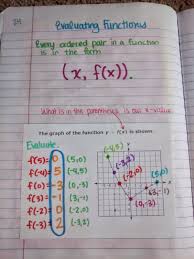 Evaluating Functions
Every ordered pair in a function
is in the form
(x, f(x)).
What is in the parenthesis is our x-value
The graph of the function y = f(x) is shown.
Evaluate.
f(5)= 0 (5,0)
f(-4)= 5 (-4,5)
f(0)= -3 (0,-3)
f(3)= -1 (3,-1)
f(-2)= 0 (-2,0)
f(-3)= 2 (-3,2)
(-4,5)
(-3,2)
(-2,0)
(5,0)
(3,-1)
(0,-3)